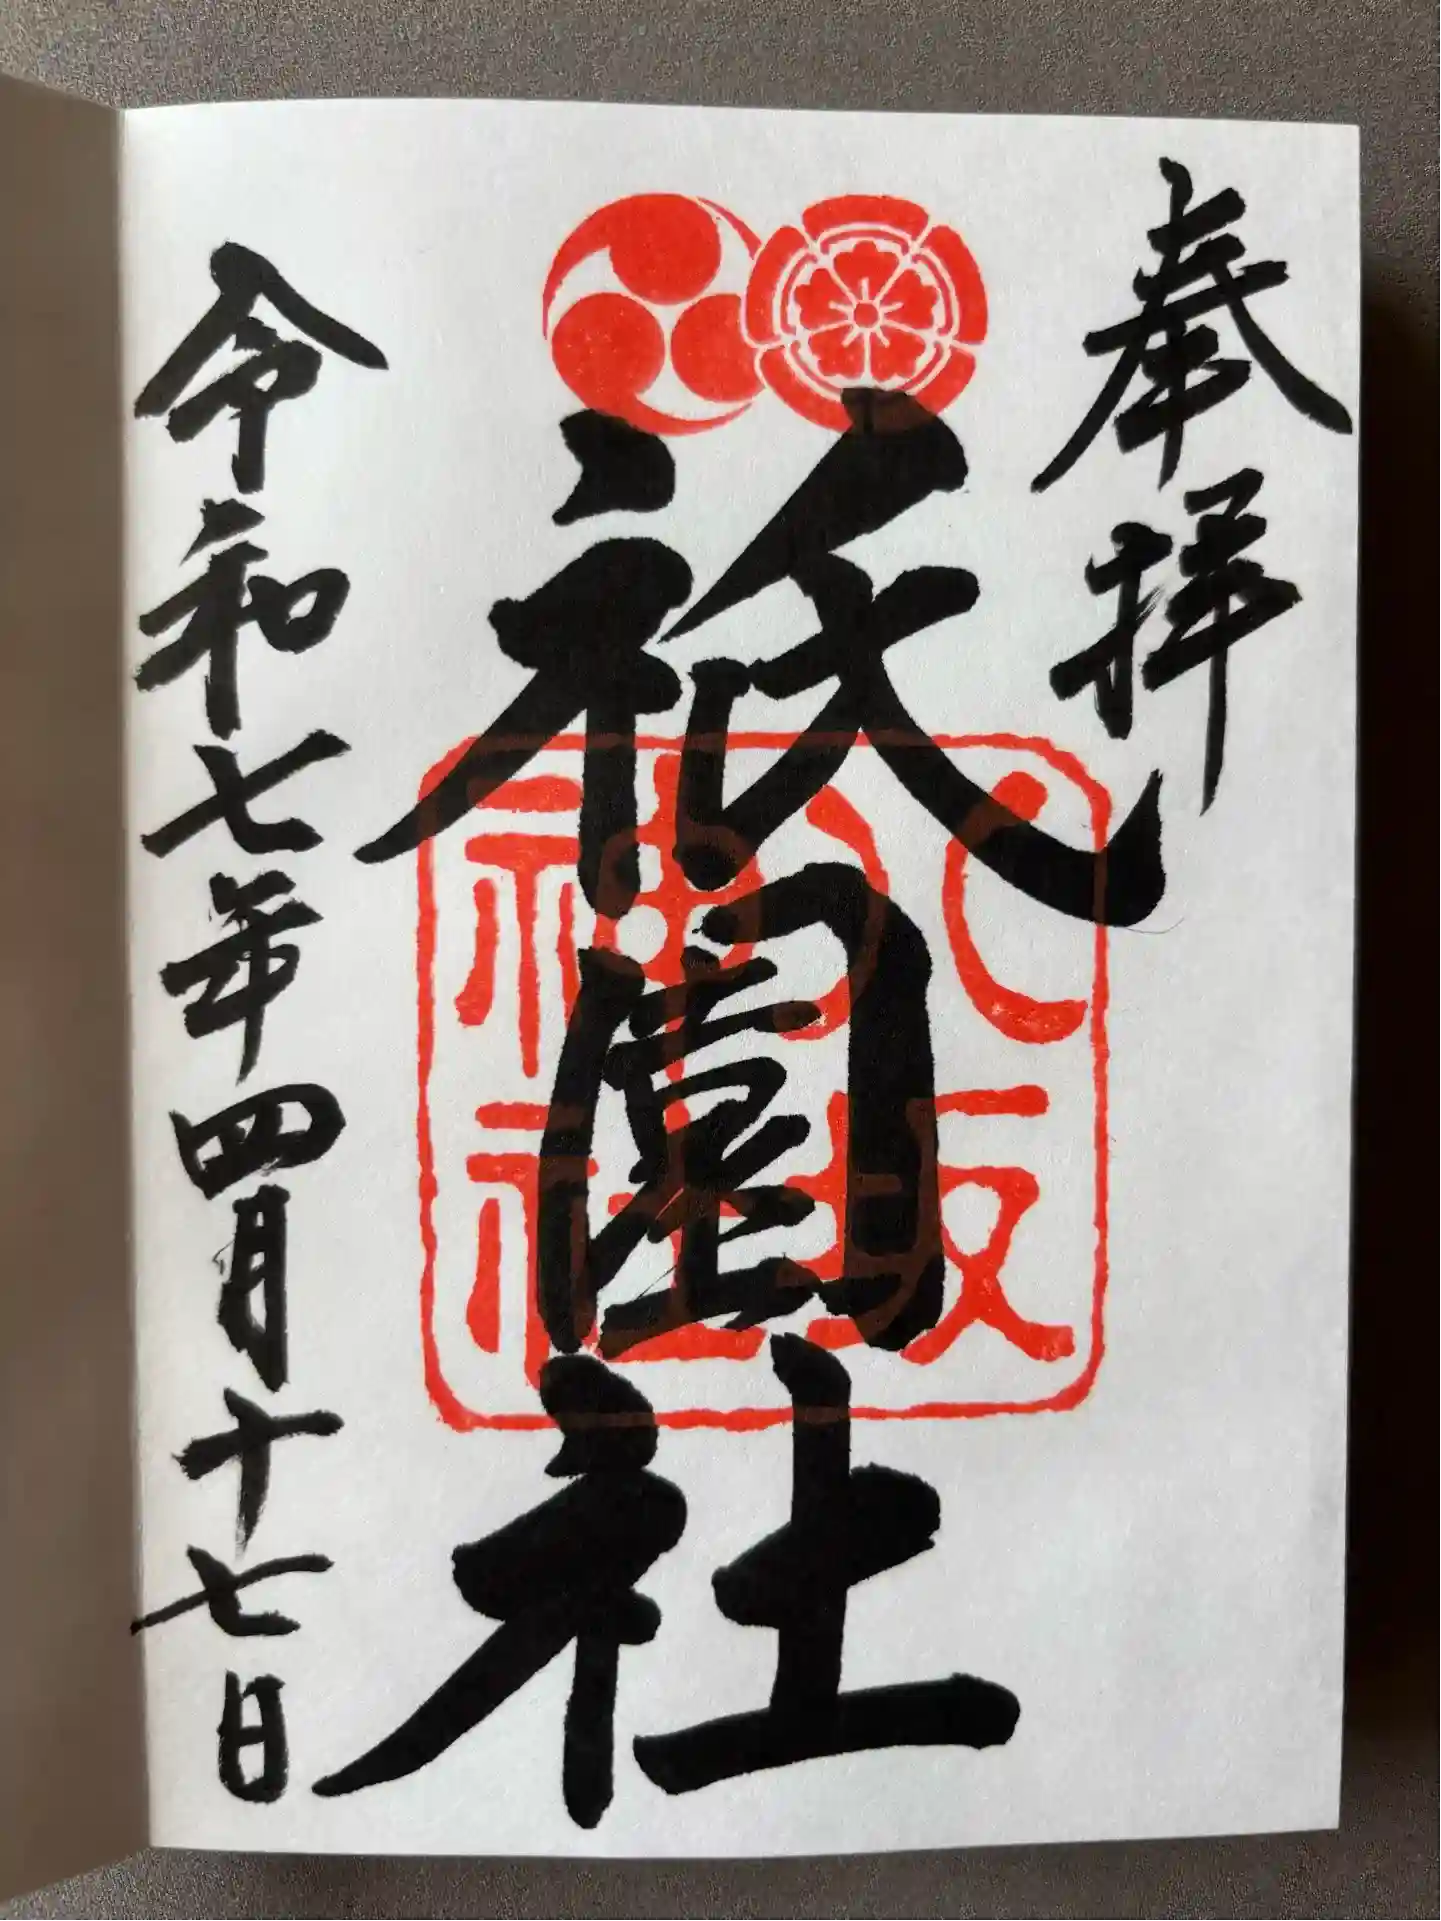 奉拝
祇園社
八坂
神社
令和七年四月十七日